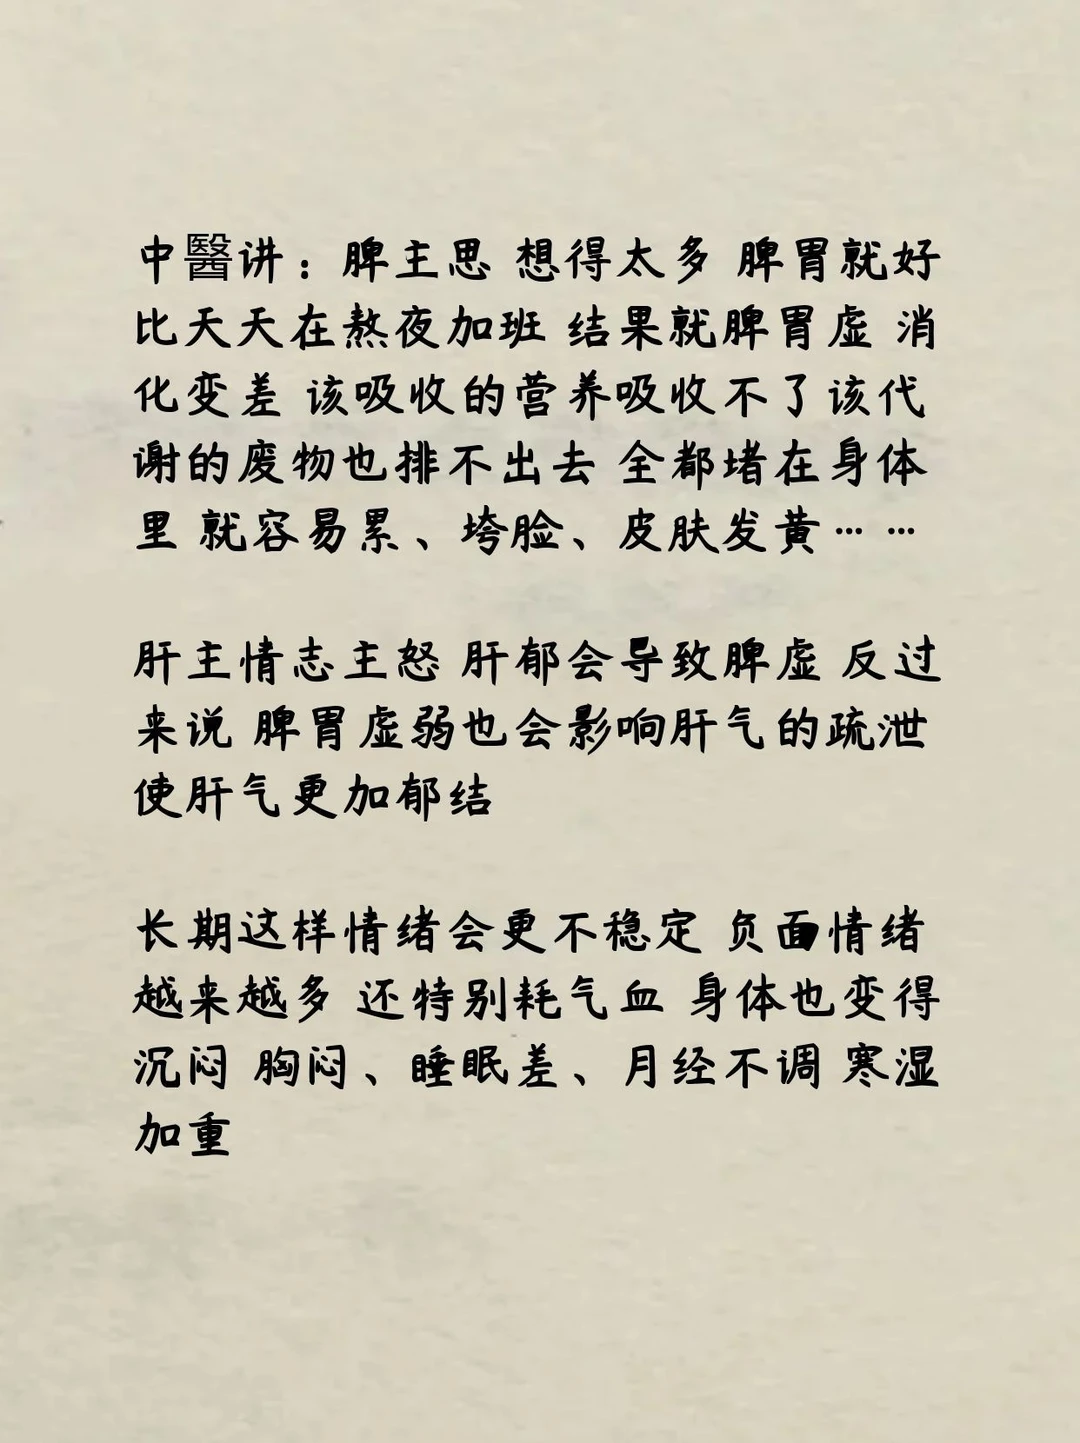 中醫讲：脾主思 想得太多 脾胃就好
比天天在熬夜加班 结果就脾胃虚 消
化变差 该吸收的营养吸收不了该代
谢的废物也排不出去 全都堵在身体
里 就容易累、垮脸、皮肤发黄… …
肝主情志主怒 肝郁会导致脾虚 反过
来说 脾胃虚弱也会影响肝气的疏泄
使肝气更加郁结
长期这样情绪会更不稳定 负面情绪
越来越多 还特别耗气血 身体也变得
沉闷 胸闷、睡眠差、月经不调 寒湿
加重